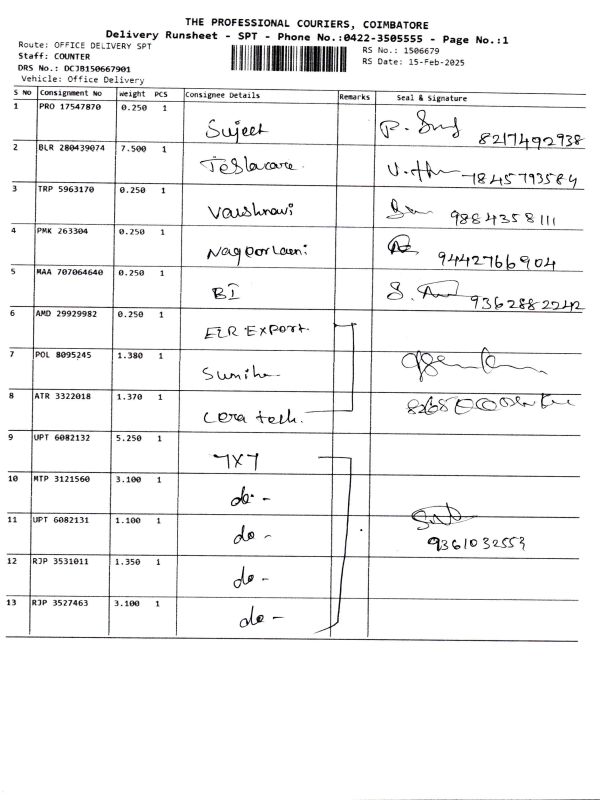 THE PROFESSIONAL COURIERS, COIMBATORE
Delivery Runsheet - SPT - Phone No.:0422-3505555 - Page No.:1
Route: OFFICE DELIVERY SPT
Staff: COUNTER
DRS No.: DCJB150667901
Vehicle: Office Delivery
RS No.: 1506679
RS Date: 15-Feb-2025
S No Consignment No Weight PCS Consignee Details Remarks Seal & Signature
1 PRO 17547870 0.250 1 Sujeet 8217492938
2 BLR 280439074 7.500 1 Teslacare 7845793584
3 TRP 5963170 0.250 1 Vaishnavi 9884358111
4 PMK 263304 0.250 1 9442766904
5 MAA 707064640 0.250 1 BI 9362882242
6 AMD 29929982 0.250 1 Export
7 POL 8095245 1.380 1
8 ATR 3322018 1.370 1 Cera tech.
9 UPT 6082132 5.250 1 7X7
10 MTP 3121560 3.100 1 do -
11 UPT 6082131 1.100 1 do - 9361032553
12 RJP 3531011 1.350 1 do -
13 RJP 3527463 3.100 1 do -